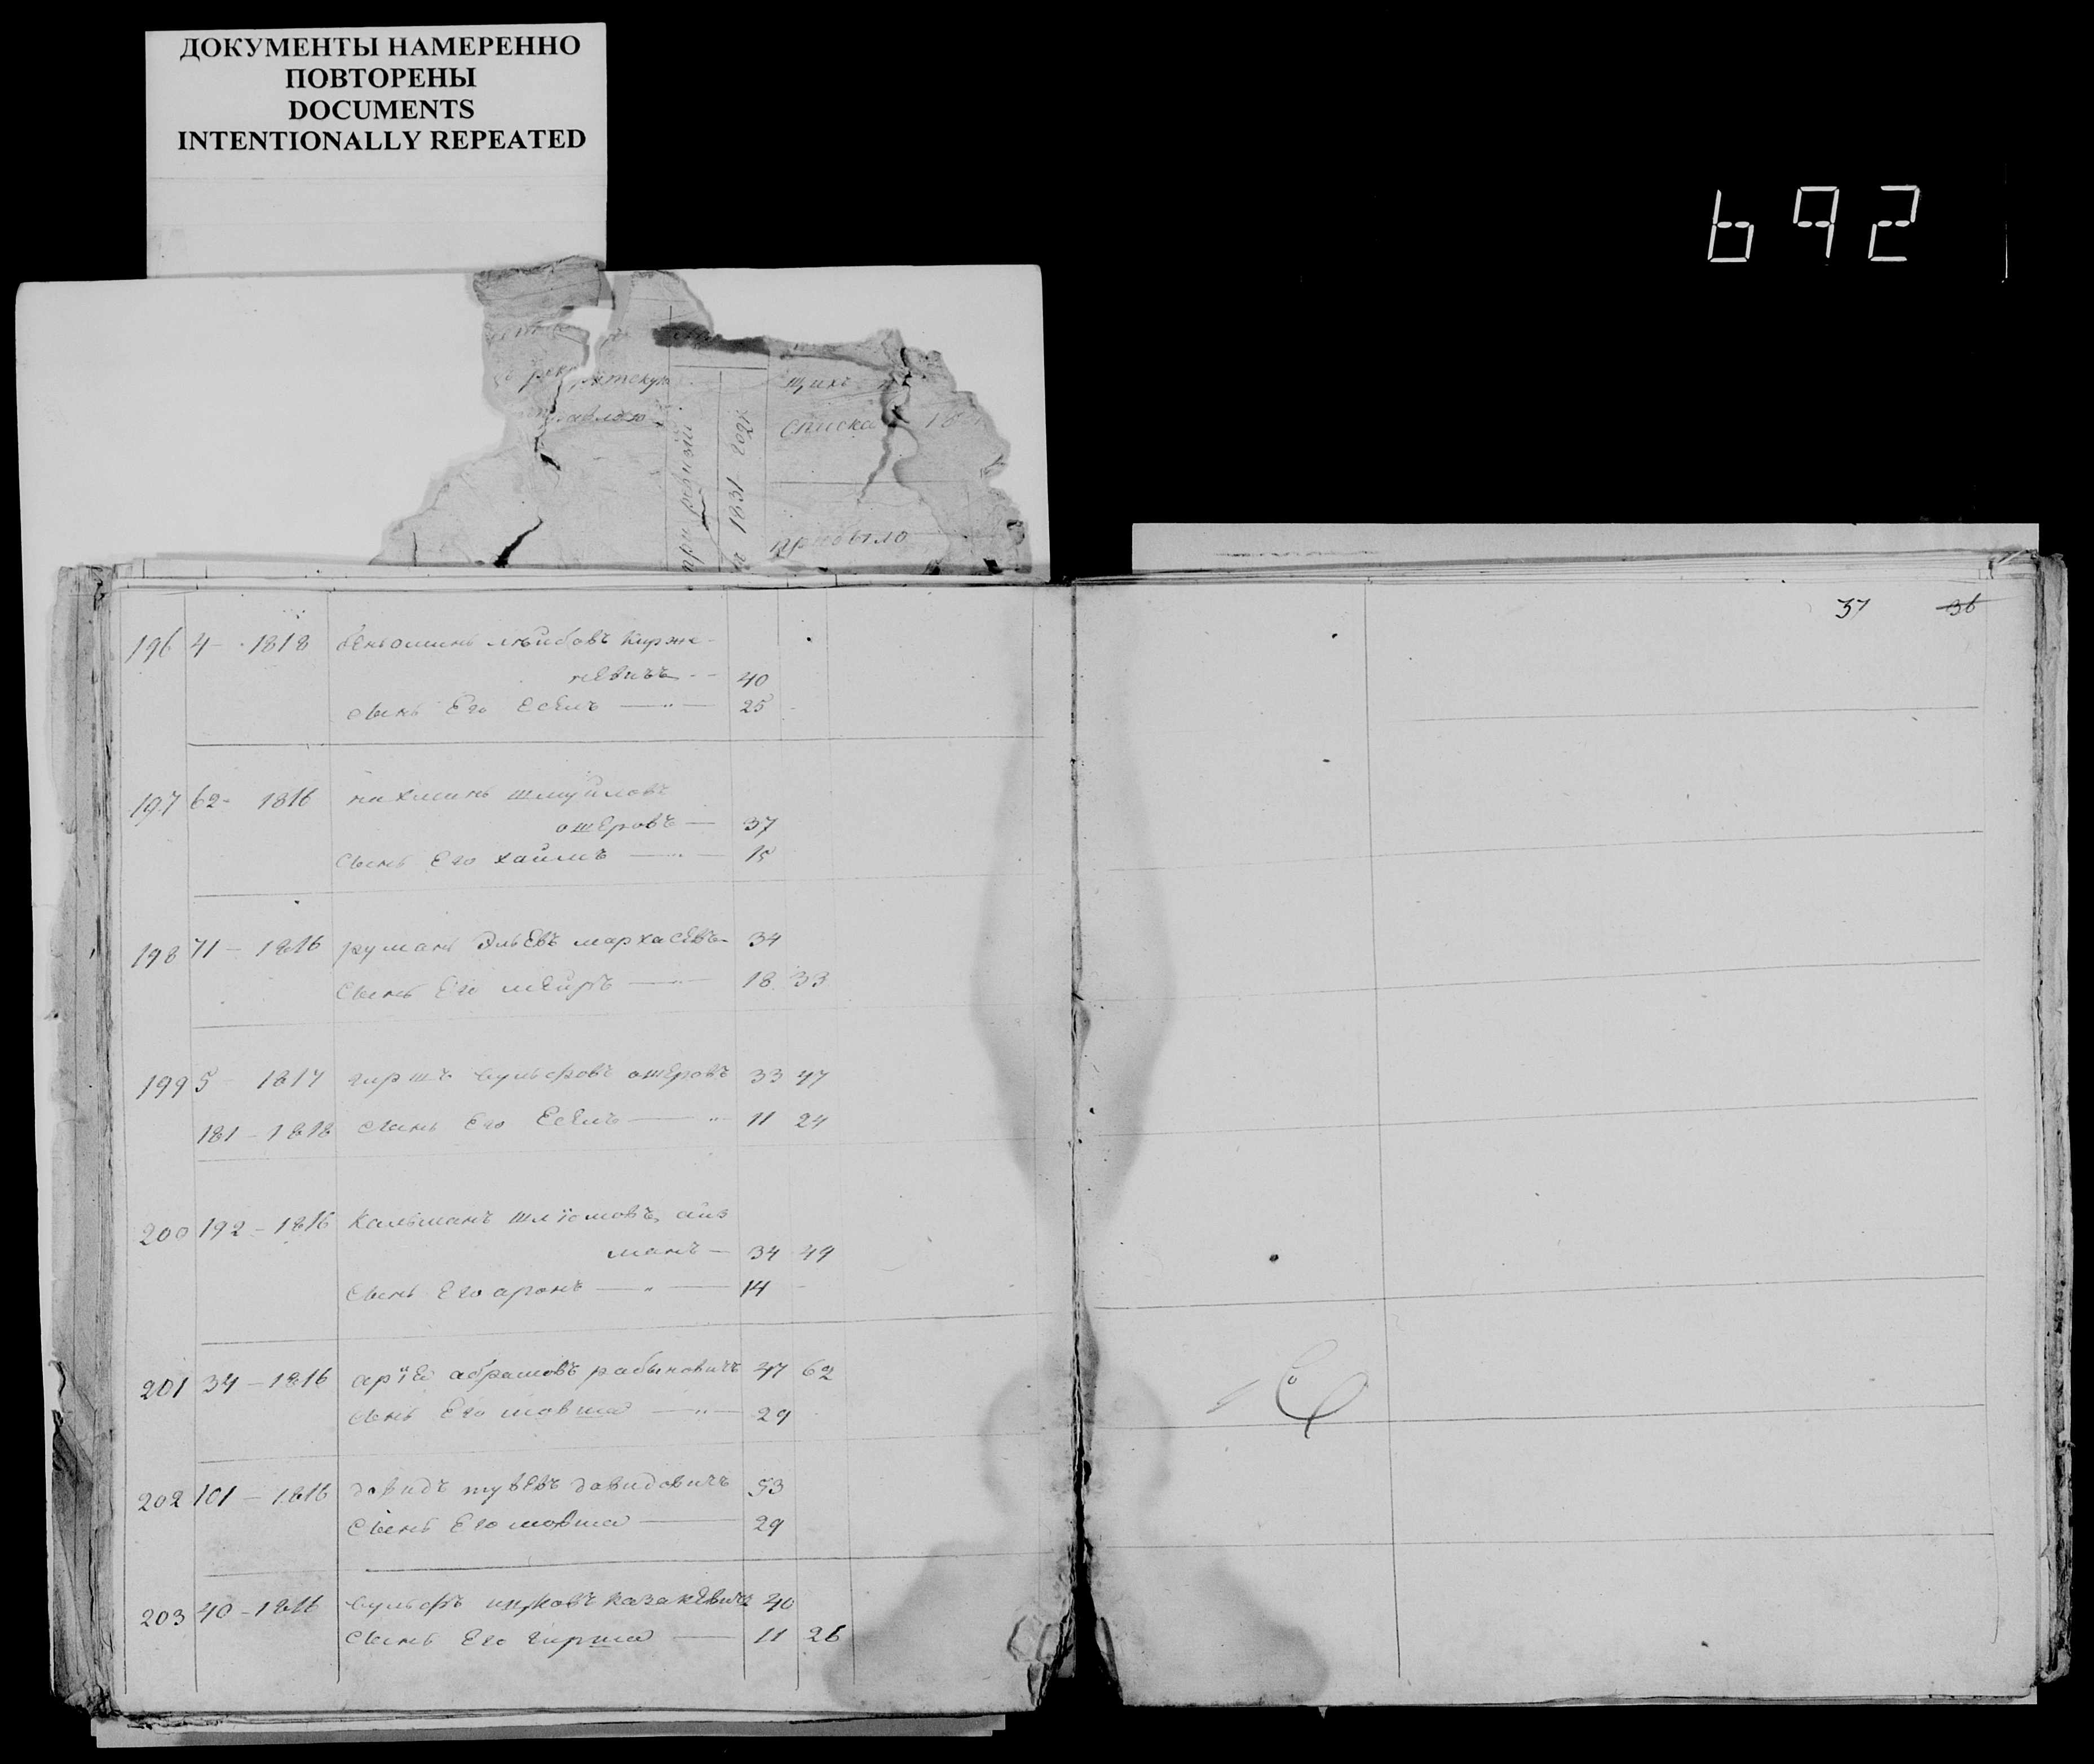 ДОКУМЕНТЫ НАМЕРЕННО
ПОВТОРЕНЫ
DOCUMENTS
INTENTIONALLY REPEATED
692
при ревизии
1831 году
щихъ
списка
прибыло
37 36
196 4 - 1818 беньоминъ лѣибовъ Кирже-
невичъ - - 40
сынъ Его Есѣлъ — " — 25
197 62 - 1816 нахманъ шмуйловъ
ошеровъ — 37
сынъ Его хаимъ — " — 15
198 71 - 1816 руманъ Эльевъ мархасевъ - 34
сынъ Его мейръ — " — 18 33
199 5 - 1817 гиршъ вульфовъ ошеровъ 33 47
181 - 1818 сынъ Его Есѣлъ — " 11 24
200 192 - 1816 Кальманъ шлїомовъ айз
манъ — 34 49
сынъ Его аронъ — " — 14 -
201 34 - 1816 арїя абрамовъ рабиновичъ 47 62
сынъ Его мовша — " — 29
202 101 - 1816 давидъ тувевъ давидовичъ 53
сынъ Его мовша — 29
203 40 - 1816 вульфъ ицковъ казакевичъ 40
сынъ Его гирша — 11 26